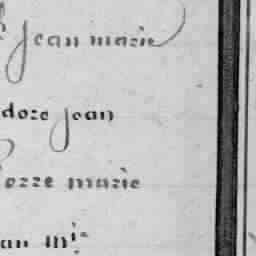 jean marie
doze jean
ozze marie
an m.ie